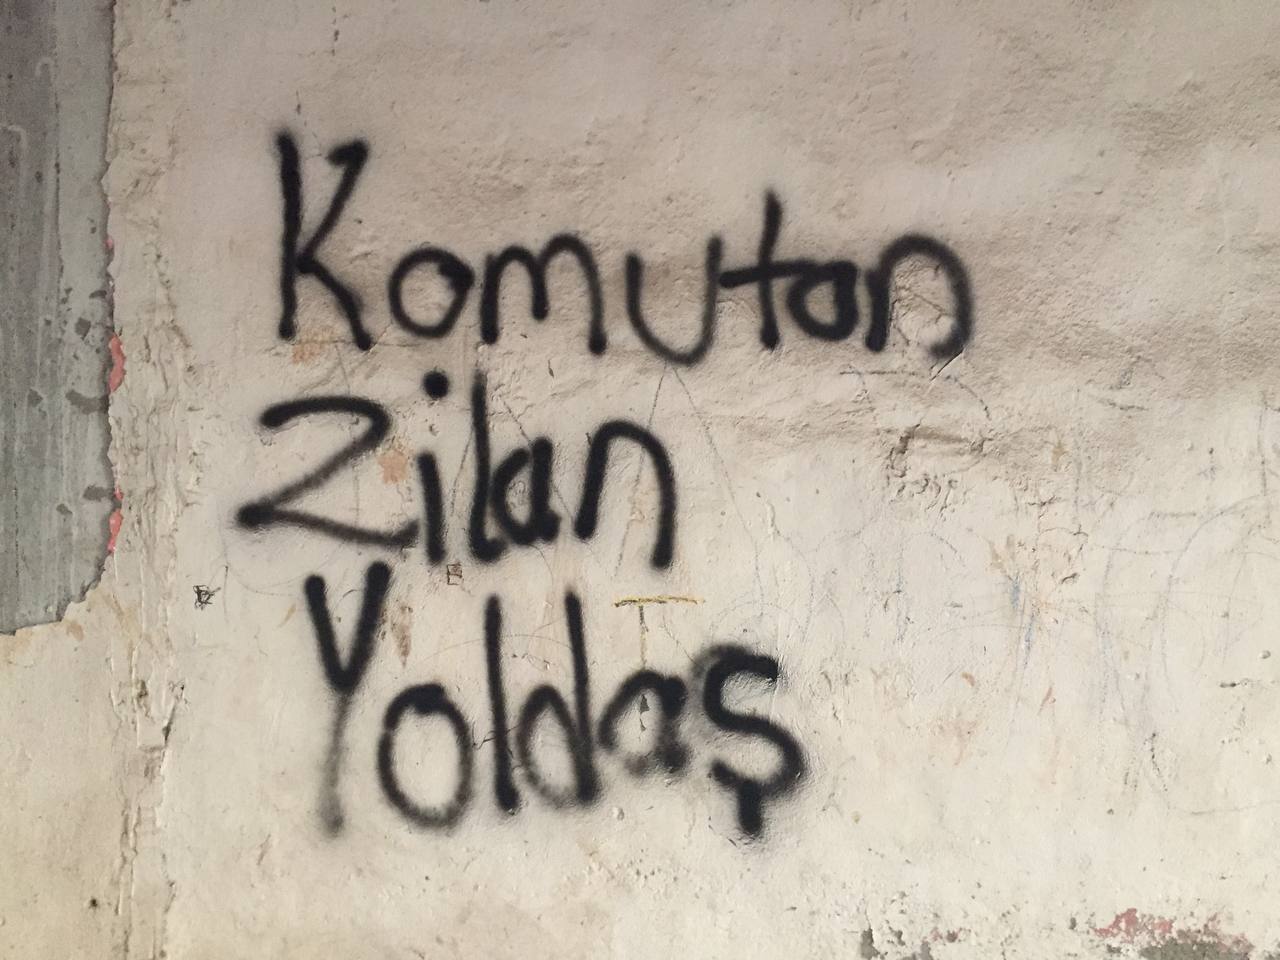 Komutan
Zilan
Yoldaş